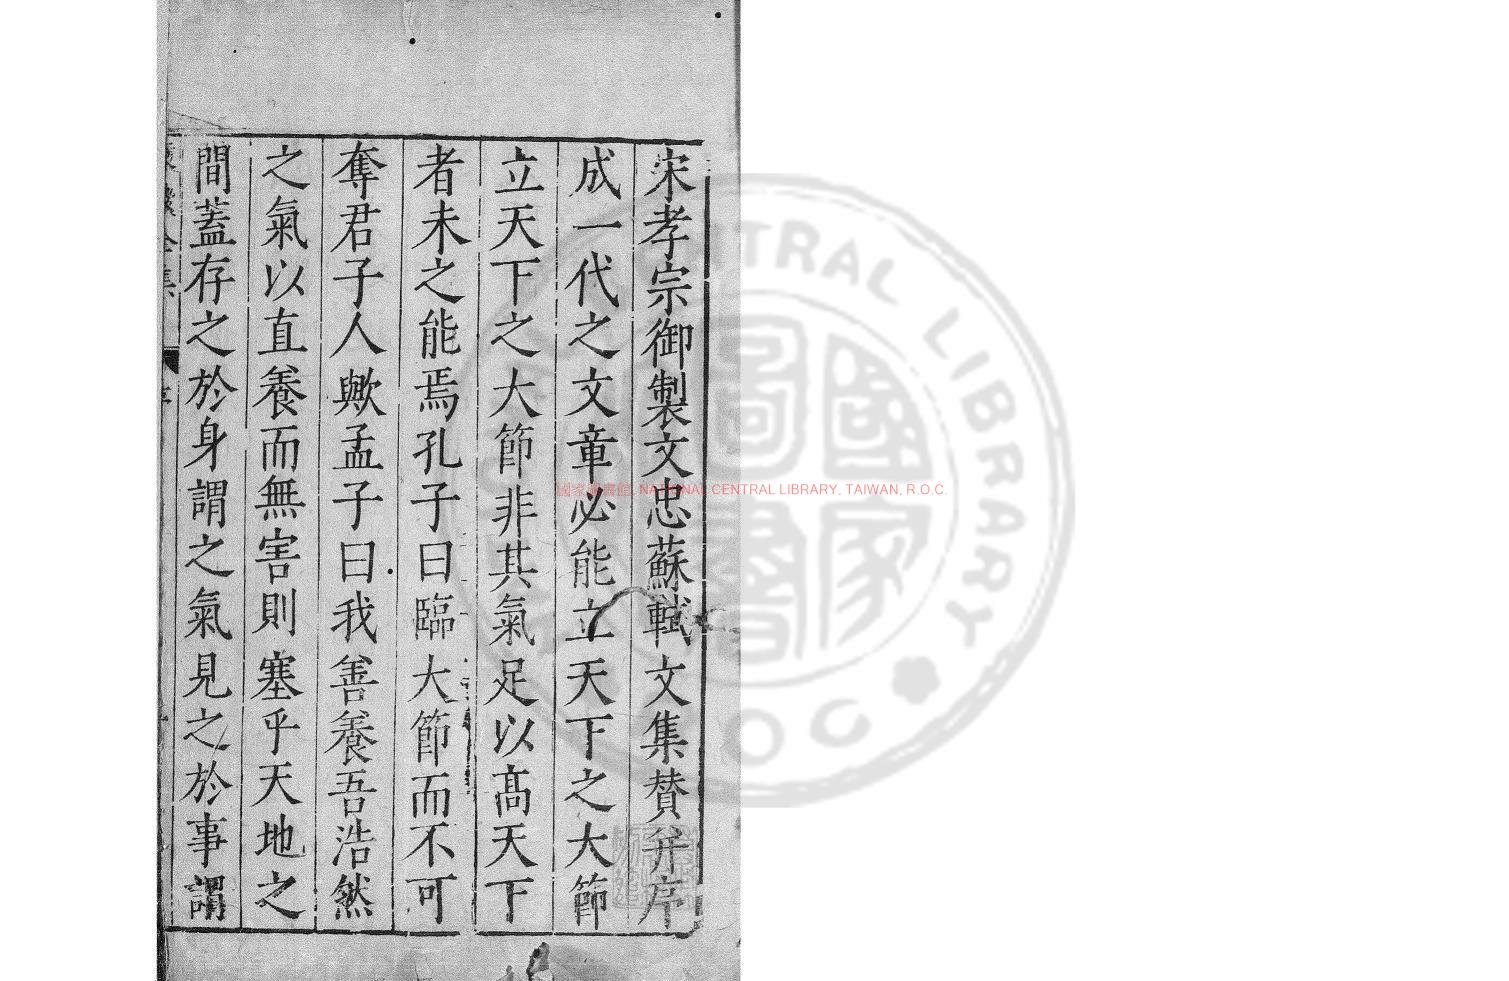 宋孝宗御製文忠蘇軾文集賛并序
成一代之文章必能立天下之大節
立天下之大節非其氣足以髙天下
者未之能焉孔子曰臨大節而不可
奪君子人歟孟子曰我善養吾浩然
之氣以直養而無害則塞乎天地之
間蓋存之於身謂之氣見之於事謂
全集
國家圖書館, NATIONAL CENTRAL LIBRARY, TAIWAN, R.O.C.
CENTRAL LIBRARY